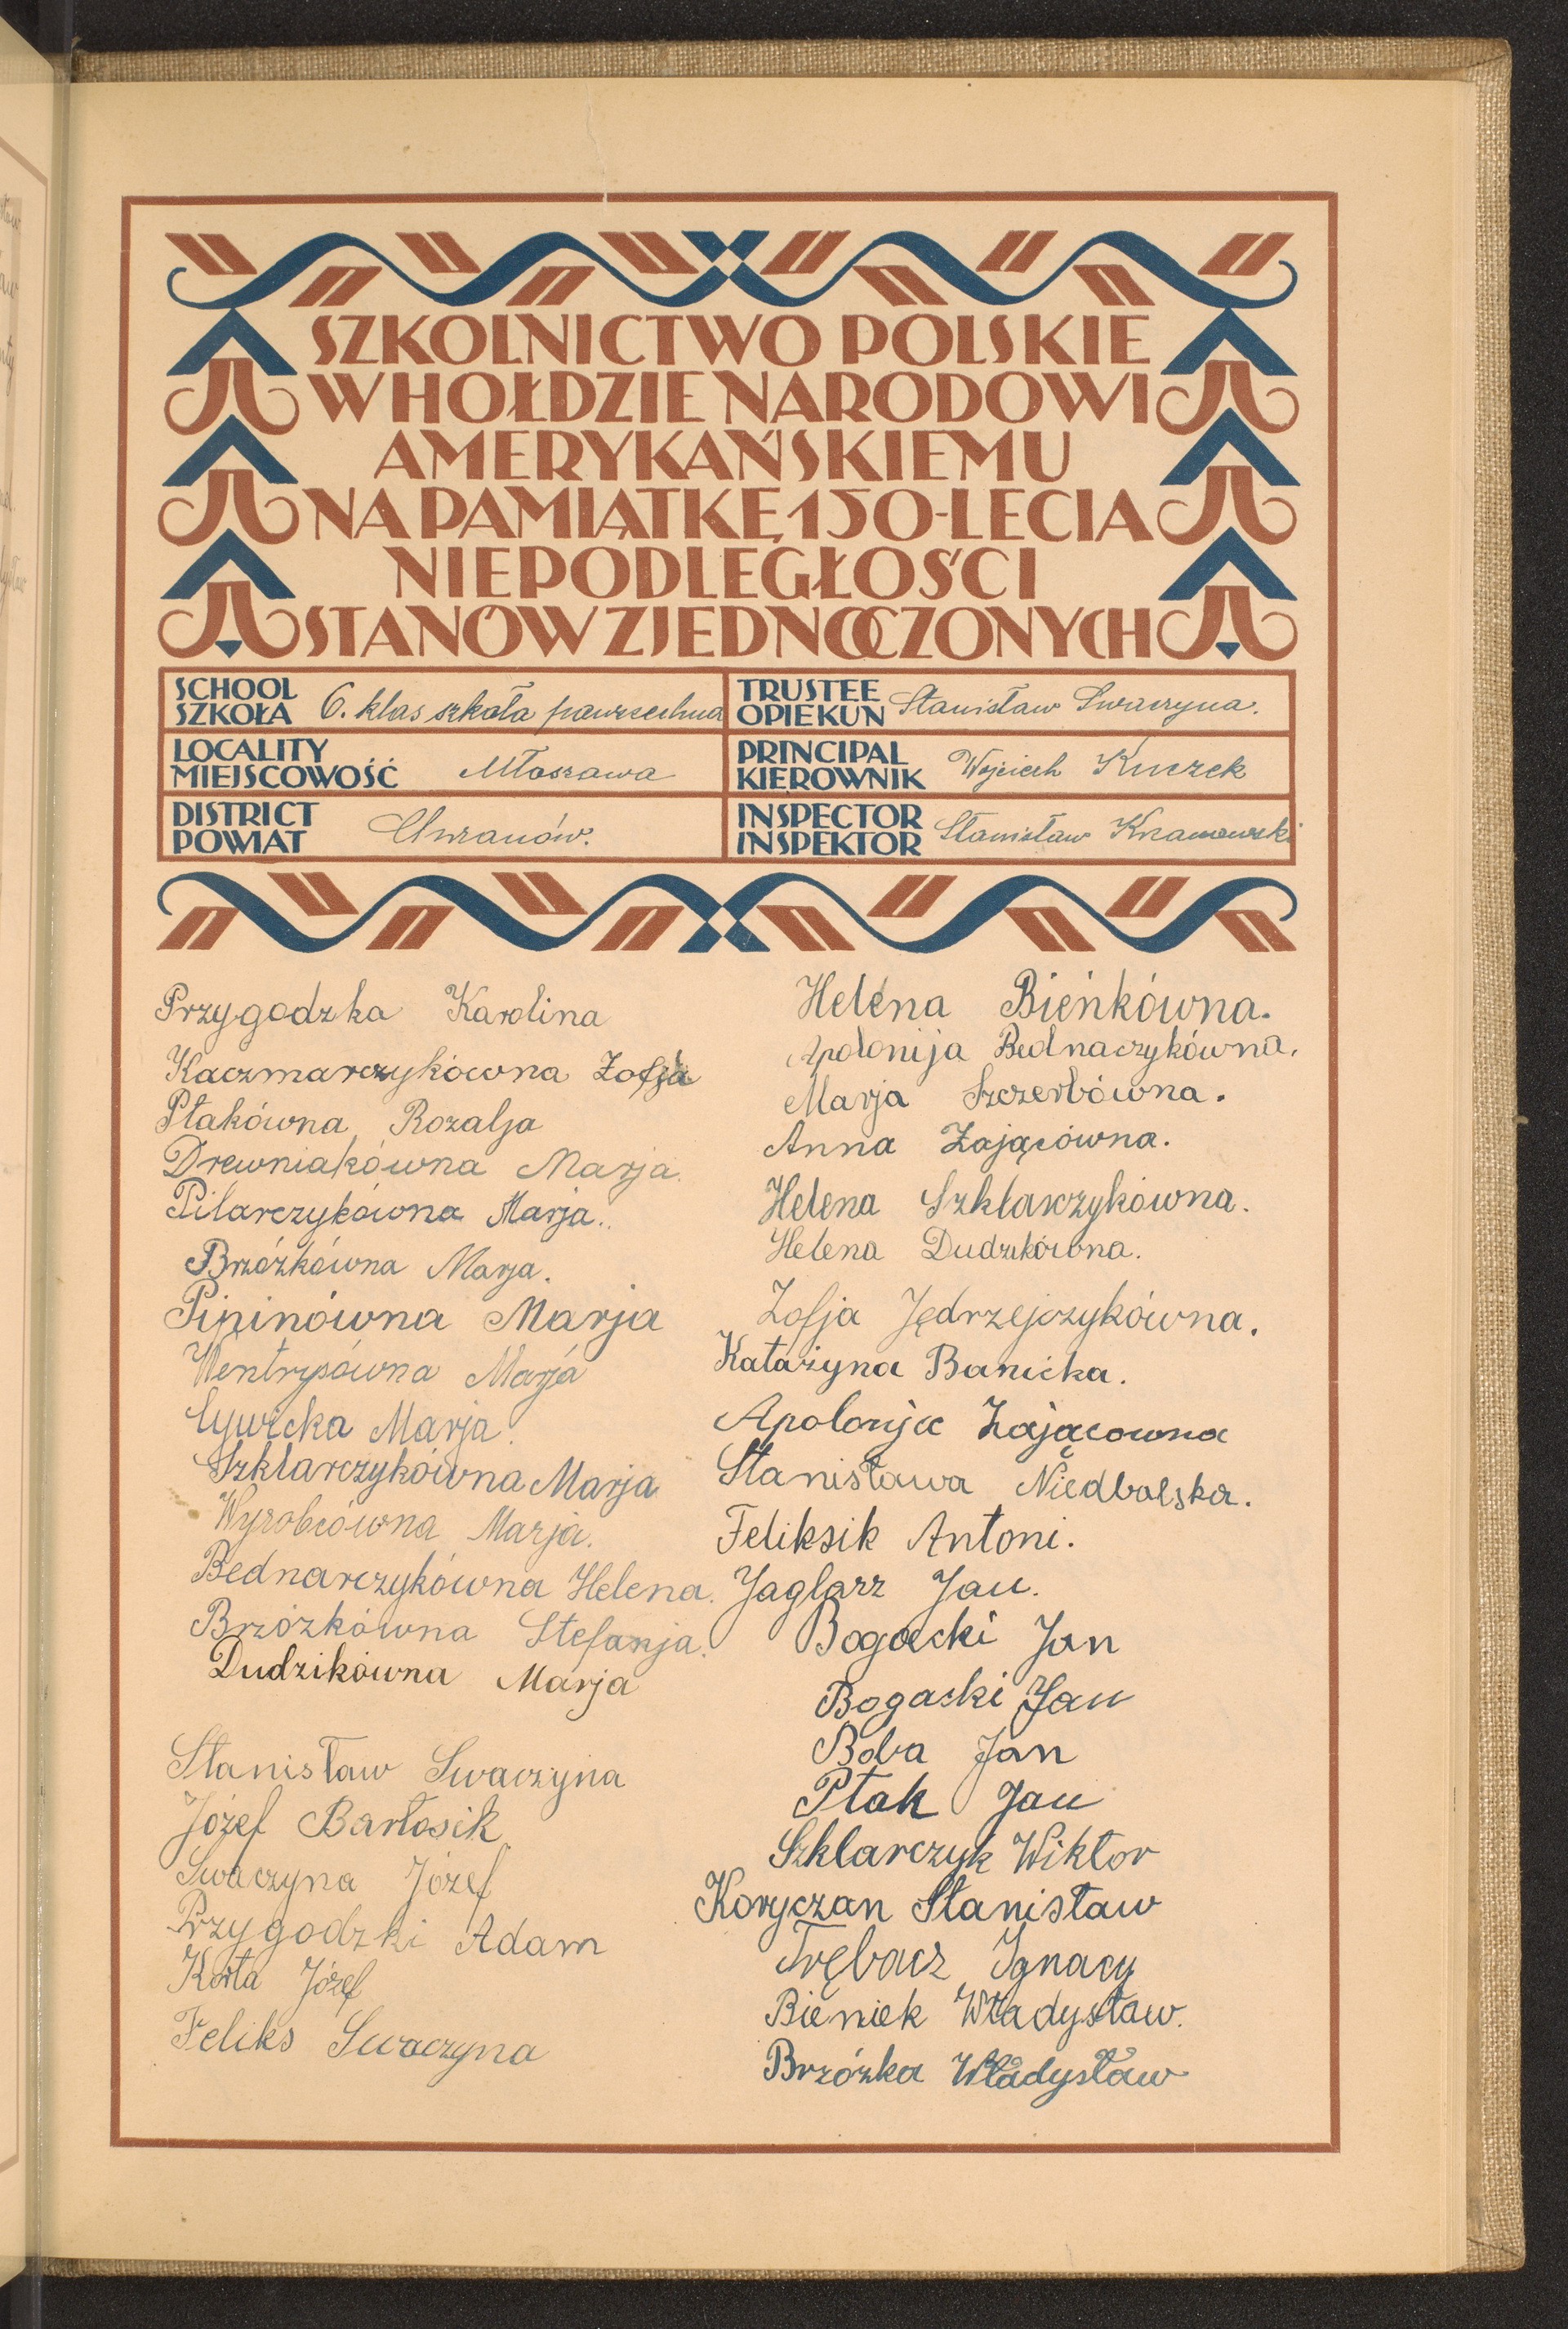 SZKOLNICTWO POLSKIE
W HOŁDZIE NARODOWI
AMERYKAŃSKIEMU
NA PAMIĄTKĘ 150-LECIA
NIEPODLEGŁOŚCI
STANÓW ZJEDNOCZONYCH
SCHOOL
SZKOŁA 6. klas szkoła powszechna
TRUSTEE
OPIEKUN Stanisław Swaczyna.
LOCALITY
MIEJSCOWOŚĆ Młoszowa
PRINCIPAL
KIEROWNIK Wojciech Kuczek
DISTRICT
POWIAT Chrzanów.
INSPECTOR
INSPEKTOR Stanisław
Przygodzka Karolina
Kaczmarczykówna Zofja
Ptakówna Rozalja
Drewniakówna Marja.
Pilarczykówna Marja.
Brzózkówna Marja.
Pipinówna Marja
Wentrysówna Marja
Cywicka Marja.
Szklarczykówna Marja
Wyrobcówna Marja.
Bednarczykówna Helena.
Brzózkówna Stefanja.
Dudzikówna Marja
Stanisław Swaczyna
Józef Bartosik
Swaczyna Józef
Przygodzki Adam
Korta Józef
Feliks Swaczyna
Helena Bieńkówna.
Apolonija Bednaczykówna.
Marja Szczerbówna.
Anna Zającówna.
Helena Szklarczykówna.
Helena Dudzikówna.
Zofja Jędrzejczykówna.
Katażyna Banicka.
Apolonja Zającowna
Stanisława Niedbalska.
Feliksik Antoni.
Jaglarz Jan.
Bogacki Jan
Bogacki Jan
Boba Jan
Ptak Jan
Szklarczyk Wiktor
Koryczan Stanisław
Trębacz Ignacy
Bieniek Władysław.
Brzózka Władysław